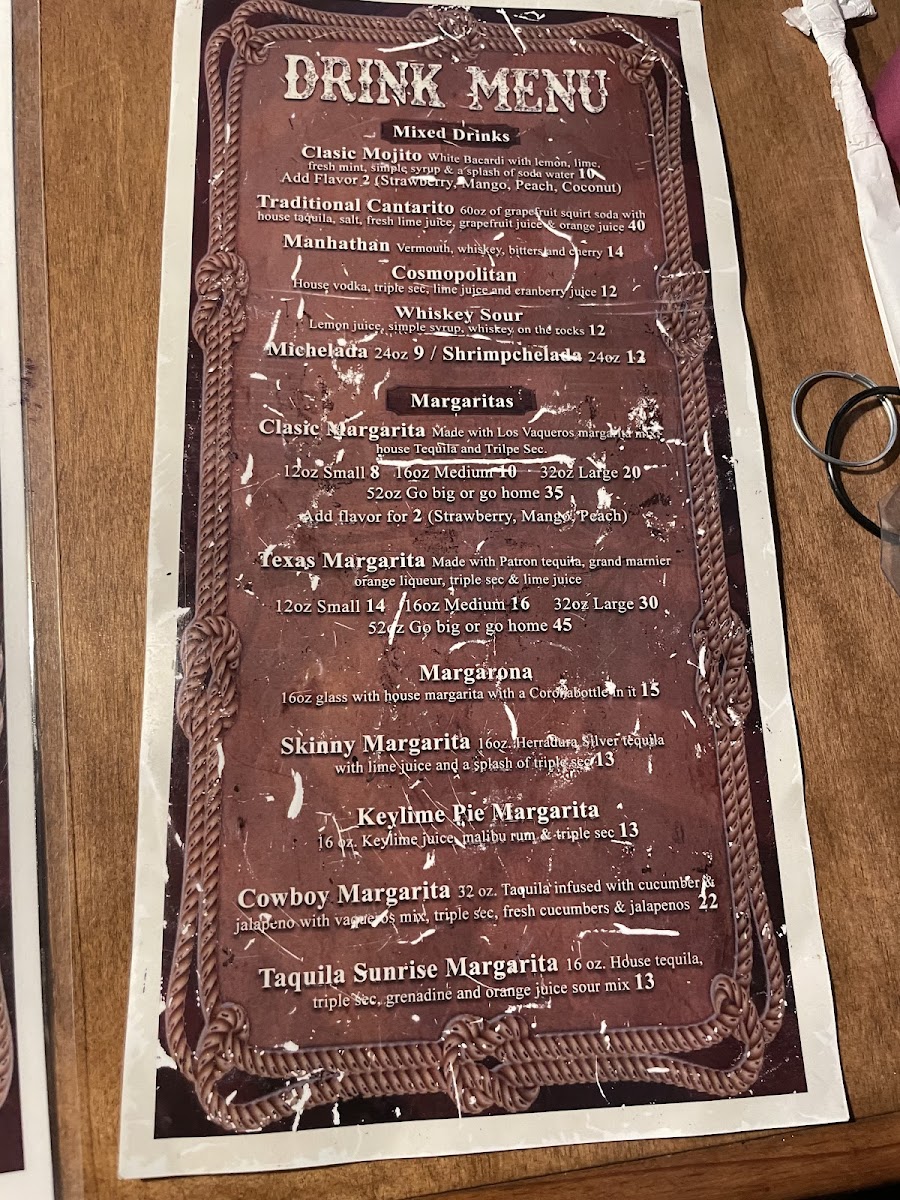 DRINK MENU
Mixed Drinks
Clasic Mojito White Bacardi with lemon, lime,
fresh mint, simple syrup & a splash of soda water 10
Add Flavor 2 (Strawberry, Mango, Peach, Coconut)
Traditional Cantarito 60oz of grapefruit squirt soda with
house taquila, salt, fresh lime juice, grapefruit juice & orange juice 40
Manhathan Vermouth, whiskey, bitters and cherry 14
Cosmopolitan
House vodka, triple sec, lime juice and cranberry juice 12
Whiskey Sour
Lemon juice, simple syrup, whiskey on the rocks 12
Michelada 24oz 9 / Shrimpchelada 24oz 12
Margaritas
Clasic Margarita Made with Los Vaqueros margarita mix,
house Tequila and Trilpe Sec.
12oz Small 8 16oz Medium 10 32oz Large 20
52oz Go big or go home 35
Add flavor for 2 (Strawberry, Mango, Peach)
Texas Margarita Made with Patron tequila, grand marnier
orange liqueur, triple sec & lime juice
12oz Small 14 16oz Medium 16 32oz Large 30
52oz Go big or go home 45
Margarona
16oz glass with house margarita with a Corona bottle in it 15
Skinny Margarita 16oz. Herradura Silver tequila
with lime juice and a splash of triple sec 13
Keylime Pie Margarita
16 oz. Keylime juice, malibu rum & triple sec 13
Cowboy Margarita 32 oz. Taquila infused with cucumber &
jalapeno with vaqueros mix, triple sec, fresh cucumbers & jalapenos 22
Taquila Sunrise Margarita 16 oz. House tequila,
triple sec, grenadine and orange juice sour mix 13